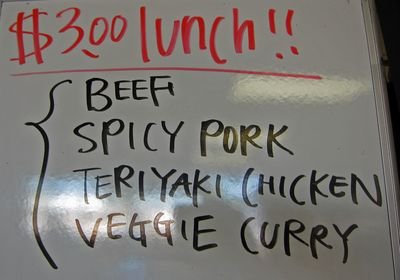 $3.00 lunch!!
BEEF
SPICY PORK
TERIYAKI CHICKEN
VEGGIE CURRY